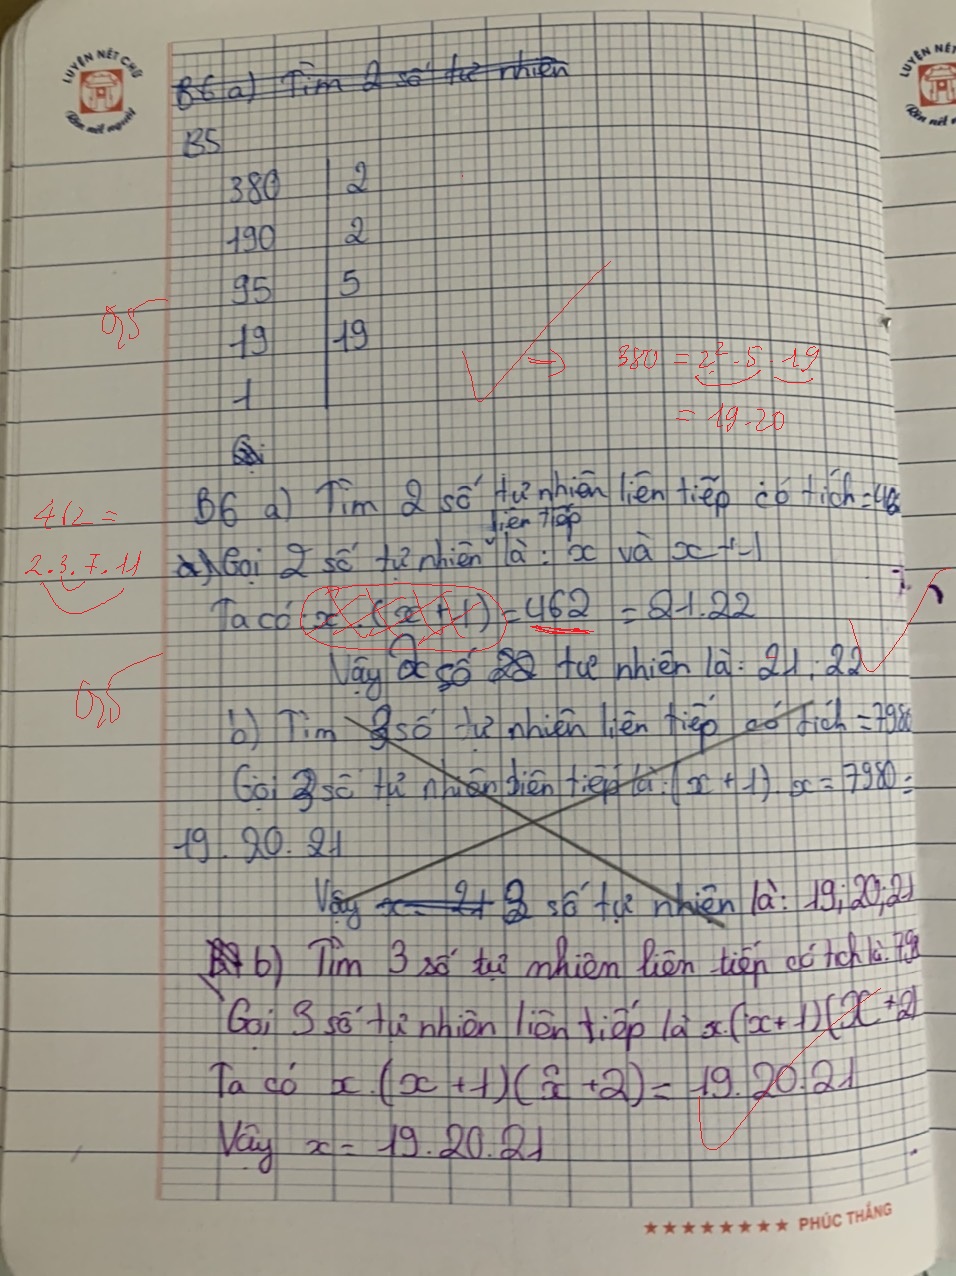 LUYỆN NÉT CHỮ
Rèn nết người
LUYỆN NÉT
Rèn nết
B6 a) Tìm 2 số tự nhiên
B5
380 | 2
190 | 2
95 | 5
19 | 19
1
0,5
→ 380 = 2² . 5 . 19
= 19.20
B6 a) Tìm 2 số tự nhiên liên tiếp có tích =
462 =
2.3.7.11
liên tiếp
a) Gọi 2 số tự nhiên là: x và x+1
Ta có x.(x+1) = 462 = 21.22
Vậy 2 số tự nhiên là: 21; 22
0,5
b) Tìm 3 số tự nhiên liên tiếp có tích = 7980
Gọi 3 số tự nhiên liên tiếp là: (x+1). x = 7980 =
19. 20. 21
Vậy x = 21 3 số tự nhiên là: 19; 20; 21
b) Tìm 3 số tự nhiêm liên tiến có tch là:
Gọi 3 số tự nhiên liên tiếp là x.(x+1)(x+2)
Ta có x.(x+1)(x+2) = 19.20.21
Vậy x = 19.20.21
PHÚC THẮNG